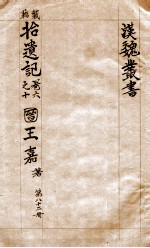 漢魏叢書
拾遺記 卷六之十
晉 王嘉 著
第八十二冊